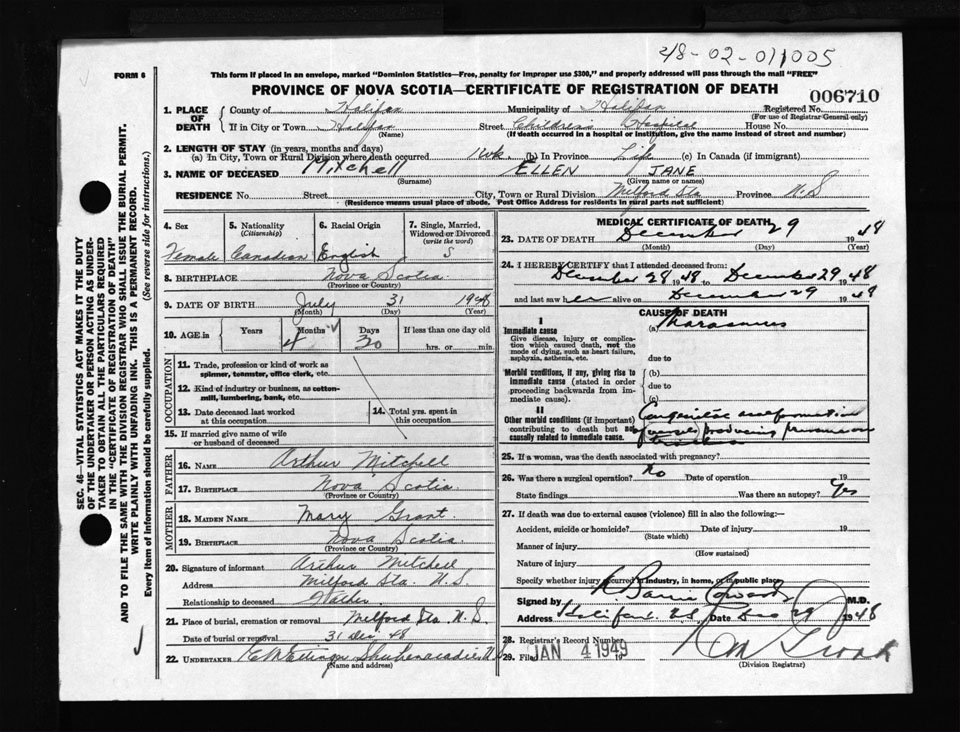 48-02-011005
FORM 6
This form if placed in an envelope, marked "Dominion Statistics—Free, penalty for improper use $300," and properly addressed will pass through the mail "FREE"
PROVINCE OF NOVA SCOTIA—CERTIFICATE OF REGISTRATION OF DEATH
006710
1. PLACE OF DEATH County of Halifax Municipality of Halifax Registered No.
(For use of Registrar-General only)
If in City or Town Halifax Street Children's Hospital House No.
(Name) (If death occurred in a hospital or institution, give the name instead of street and number)
2. LENGTH OF STAY (in years, months and days)
(a) In City, Town or Rural Division where death occurred 1 wk. (b) In Province Life (c) In Canada (if immigrant)
3. NAME OF DECEASED Mitchell ELLEN JANE
(Surname) (Given name or names)
RESIDENCE No. Street City, Town or Rural Division Milford Sta Province N.S
(Residence means usual place of abode. Post Office Address for residents in rural parts not sufficient)
4. Sex 5. Nationality (Citizenship) 6. Racial Origin 7. Single, Married, Widowed or Divorced (write the word)
Female Canadian English S
8. BIRTHPLACE Nova Scotia
(Province or Country)
9. DATE OF BIRTH July 31 1948
(Month) (Day) (Year)
10. AGE in Years Months Days If less than one day old
4 30 hrs. or min.
OCCUPATION
11. Trade, profession or kind of work as spinner, teamster, office clerk, etc.
12. Kind of industry or business, as cotton-mill, lumbering, bank, etc.
13. Date deceased last worked at this occupation
14. Total yrs. spent in this occupation
15. If married give name of wife or husband of deceased
FATHER
16. NAME Arthur Mitchell
17. BIRTHPLACE Nova Scotia
(Province or Country)
MOTHER
18. MAIDEN NAME Mary Grant
19. BIRTHPLACE Nova Scotia
(Province or Country)
20. Signature of informant Arthur Mitchell
Address Milford Sta. N.S.
Relationship to deceased Father
21. Place of burial, cremation or removal Milford Sta. N.S
Date of burial or removal 31 Dec. 48
22. UNDERTAKER Shubenacadie N.S
(Name and address)
MEDICAL CERTIFICATE OF DEATH
23. DATE OF DEATH December 29 1948
(Month) (Day) (Year)
24. I HEREBY CERTIFY that I attended deceased from:
December 28 1948 to December 29 1948
and last saw her alive on December 29 1948
CAUSE OF DEATH
I
Immediate cause (a) Marasmus
Give disease, injury or complication which caused death, not the mode of dying, such as heart failure, asphyxia, asthenia, etc.
due to
Morbid conditions, if any, giving rise to immediate cause (stated in order proceeding backwards from immediate cause).
(b)
due to
(c)
II
Other morbid conditions (if important) contributing to death but not causally related to immediate cause.
Congenital malformation
producing
25. If a woman, was the death associated with pregnancy?
26. Was there a surgical operation? No Date of operation 19
State findings Was there an autopsy? Yes
27. If death was due to external causes (violence) fill in also the following:—
Accident, suicide or homicide? Date of injury 19
(State which)
Manner of injury
(How sustained)
Nature of injury
Specify whether injury occurred in industry, in home, or in public place
Signed by M.D.
Address Date Dec 29 1948
28. Registrar's Record Number
29. Filed JAN 4 1949
(Division Registrar)
SEC. 46—VITAL STATISTICS ACT MAKES IT THE DUTY
OF THE UNDERTAKER OR PERSON ACTING AS UNDER-
TAKER TO OBTAIN ALL THE PARTICULARS REQUIRED
IN THE "CERTIFICATE OF REGISTRATION OF DEATH"
AND TO FILE THE SAME WITH THE DIVISION REGISTRAR WHO SHALL ISSUE THE BURIAL PERMIT.
WRITE PLAINLY WITH UNFADING INK. THIS IS A PERMANENT RECORD.
Every item of information should be carefully supplied. (See reverse side for instructions.)